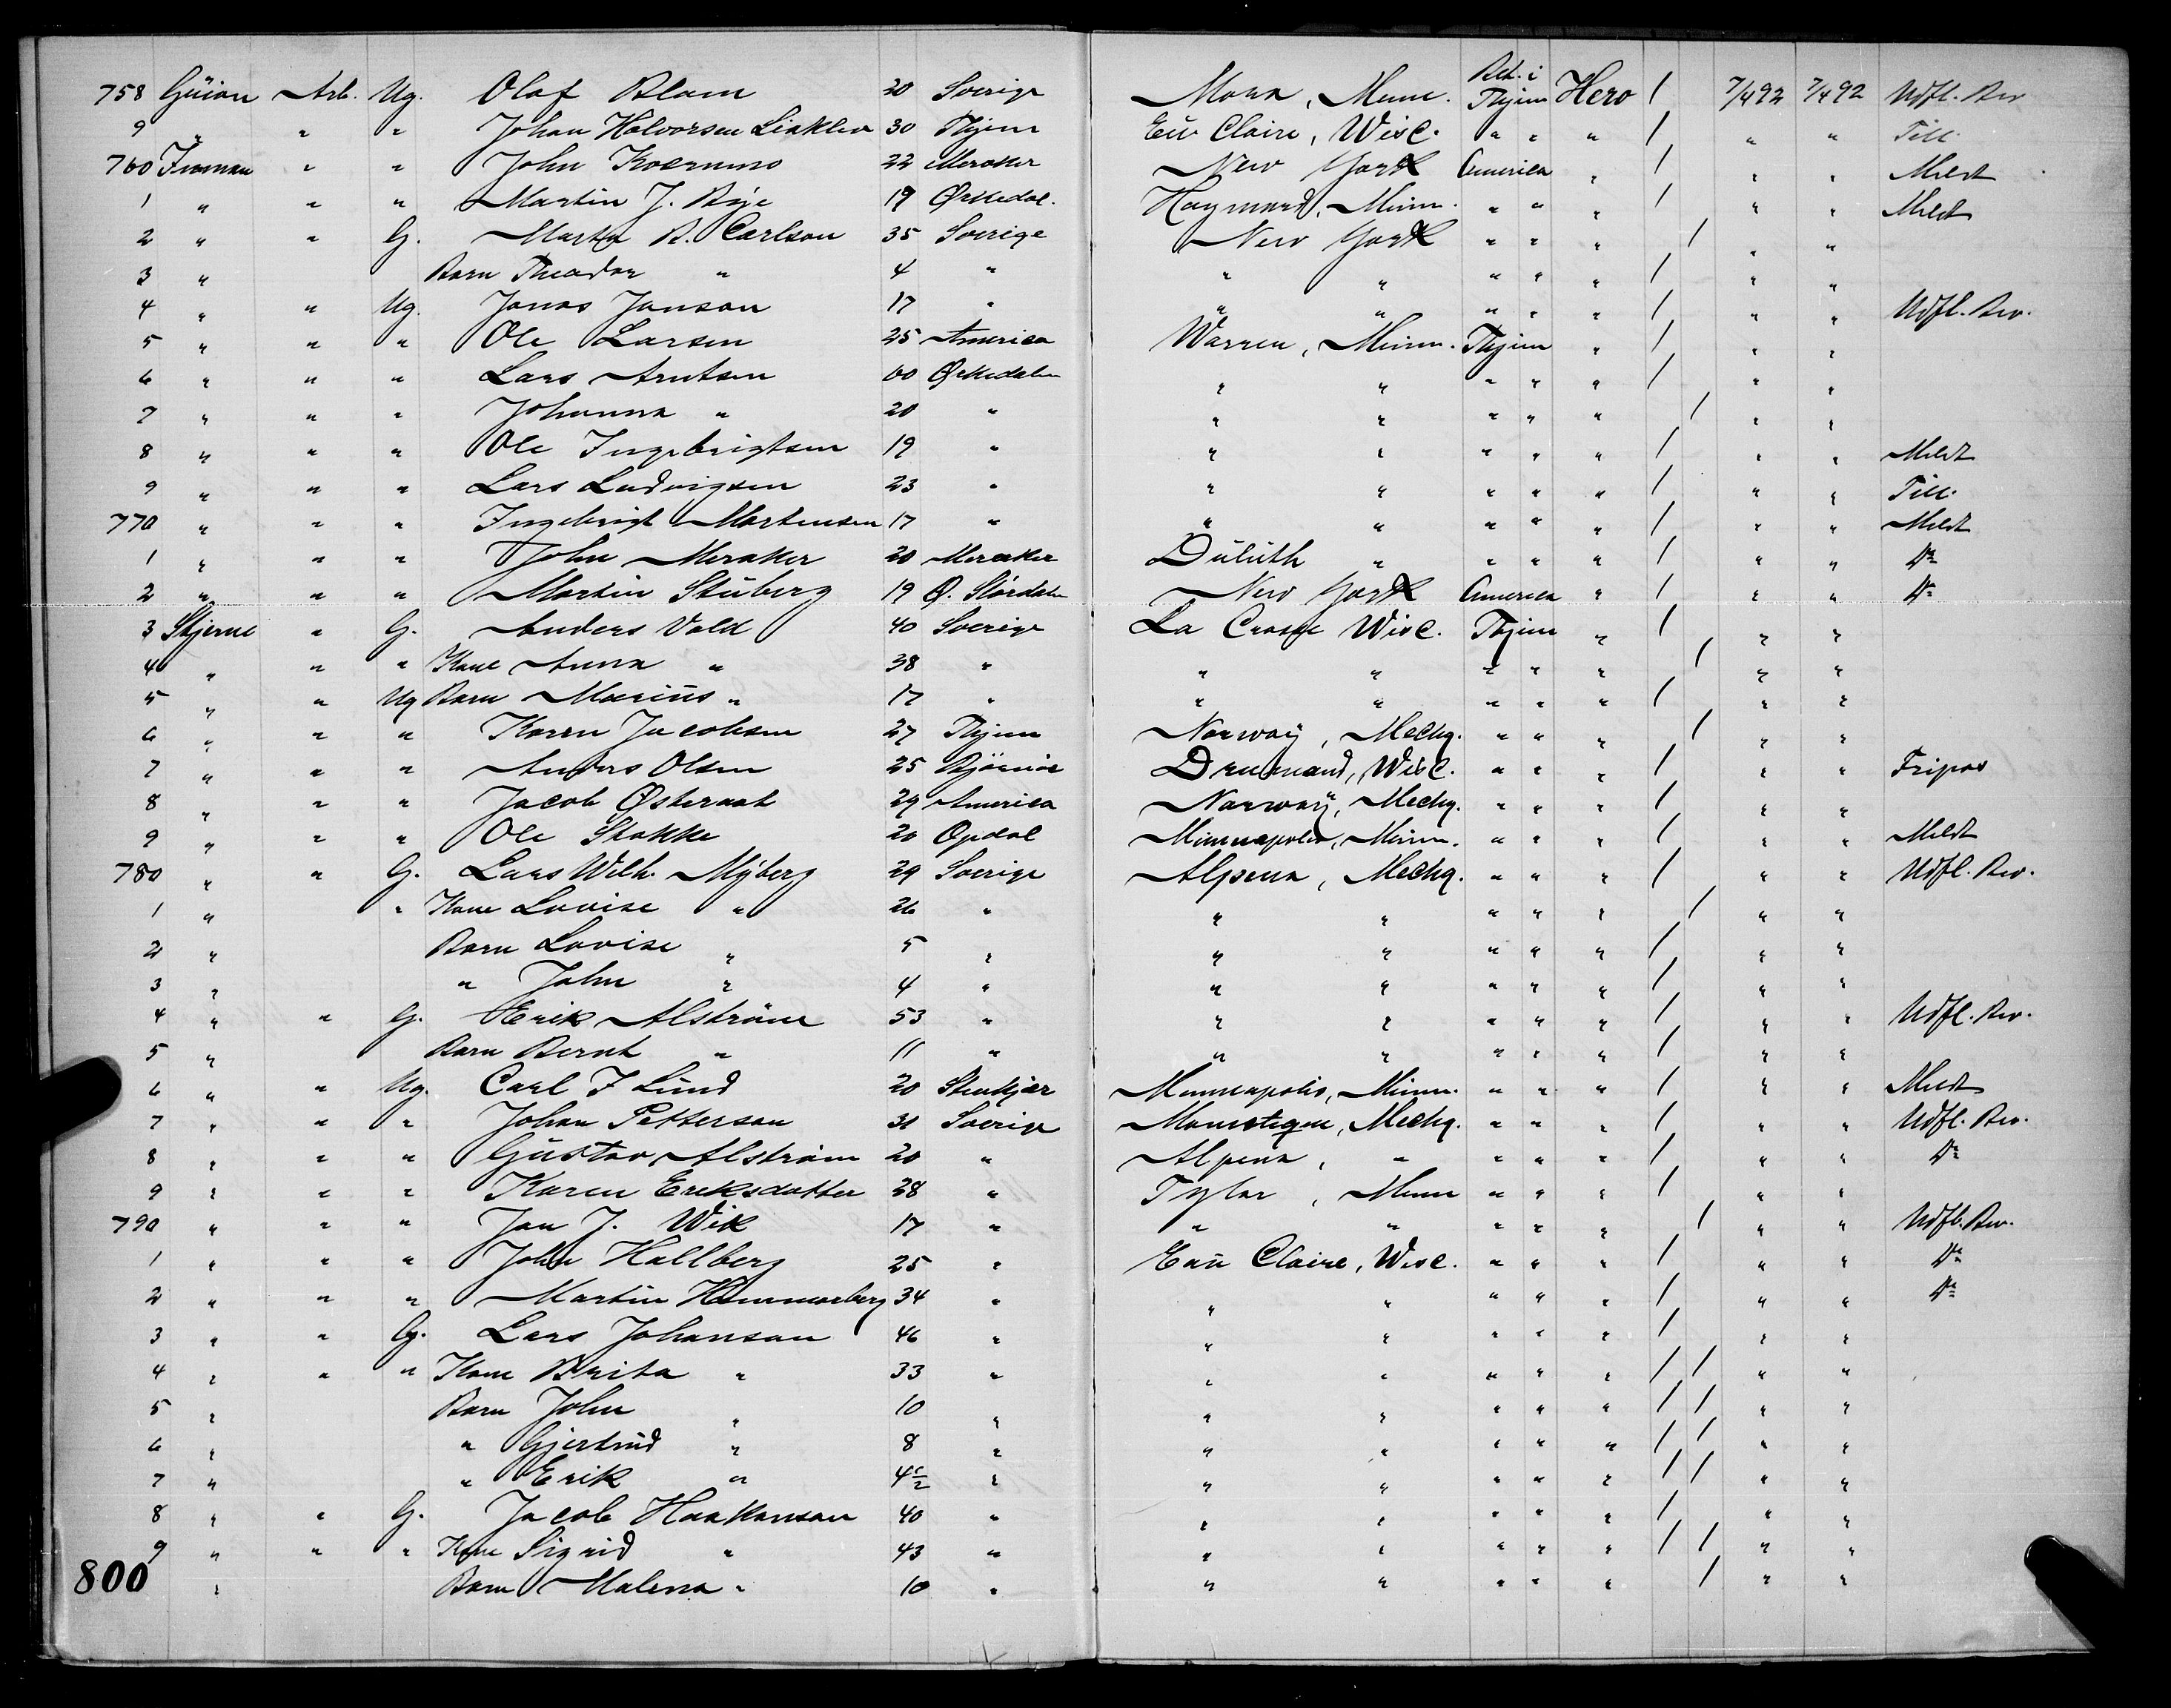 758 Guion Arb. Ug. Olaf Blom 20 Sverige Mora, Minn. Bet. i Thjem Hero / 7/4 92 7/4 92 Udfl. Bev
9 " " " Johan Halvorsen Linkleo 30 Thjem Eau Claire, Wisc. " " " / " " Till.
760 Inman " " John Kvernmo 22 Meraker New York America " / " " Meldt
1 " " " Martin J. Bije 19 Ørkedal. Haymard, Minn. " " " / " " Meldt
2 " " G. Marta B. Carlson 35 Sverige New York " " " / " "
3 " Barn Theador " 4 " " " " " " / " "
4 " " Ug. Jonas Janson 17 " " " " " " / " " Udfl. Bev.
5 " " " Ole Larsen 25 America Warren, Minn. Thjem " / " "
6 " " " Lars Arntsen 60 Ørkedalen " " " " " / " "
7 " " " Johanna " 20 " " " " " " / " "
8 " " " Ole Ingebrigtsen 19 " " " " " " / " " Meldt
9 " " " Lars Ludvigsen 23 " " " " " " / " " Till.
770 " " " Ingebrigt Martensen 17 " " " " " " / " " Meldt
1 " " " John Meraker 20 Meraker Duluth " " " " / " " Do
2 " " " Martin Stuberg 19 Ø. Stordalen New York America " / " " Do
3 Stjerne " G. Anders Vold 40 Sverige La Crosse Wisc. Thjem " / " "
4 " " " Kone Anna " 38 " " " " " " / " "
5 " " Ug Barn Marius " 17 " " " " " " / " "
6 " " " Karen Jacobsen 27 Thjem Norway, Mechg. " " " / " "
7 " " " Anders Olsen 25 Bjørnør Drumand, Wisc. " " " / " " Fripas
8 " " " Jacob Østeraat 29 America Norway, Mechg. " " " / " "
9 " " " Ole Stokke 20 Opdal Minneapolis, Minn. " " " / " " Meldt
780 " " G. Lars Wilh. Myberg 29 Sverige Alpena, Mechg. " " " / " " Udfl. Bev.
1 " " Kone Lovise " 26 " " " " " " / " "
2 " Barn Lovise " 5 " " " " " " / " "
3 " " John " 4 " " " " " " / " "
4 " " G. Erik Alström 53 " " " " " " / " " Udfl. Bev.
5 " Barn Bernt " 11 " " " " " " / " "
6 " " Ug. Carl F Lund 20 Stenkjær Minneapolis, Minn. " " " / " " Meldt
7 " " " Johan Petterson 31 Sverige Manistique, Mechg. " " " / " " Udfl. Bev.
8 " " " Gustav Alström 20 " Alpena, " " " " / " " Do
9 " " " Karen Eriksdatter 28 " Tyler, Minn " " " / " "
790 " " " Jon J. Wik 17 " " " " " " / " " Udfl. Bev.
1 " " " John Hallberg 25 " Eau Claire, Wisc. " " " / " " Do
2 " " " Martin Hammarberg 34 " " " " " " / " " Do
3 " " G. Lars Johanson 46 " " " " " " / " "
4 " " " Kone Brita " 33 " " " " " " / / " "
5 " Barn John " 10 " " " " " " / / " "
6 " " Gjertrud " 8 " " " " " " / / " "
7 " " Erik " 4 1/2 " " " " " " / / " "
8 " " G. Jacob Haakanson 40 " " " " " " / " "
9 " " " Kone Sigrid " 43 " " " " " " / / " "
800 " Barn Malena " 10 " " " " " " / " "